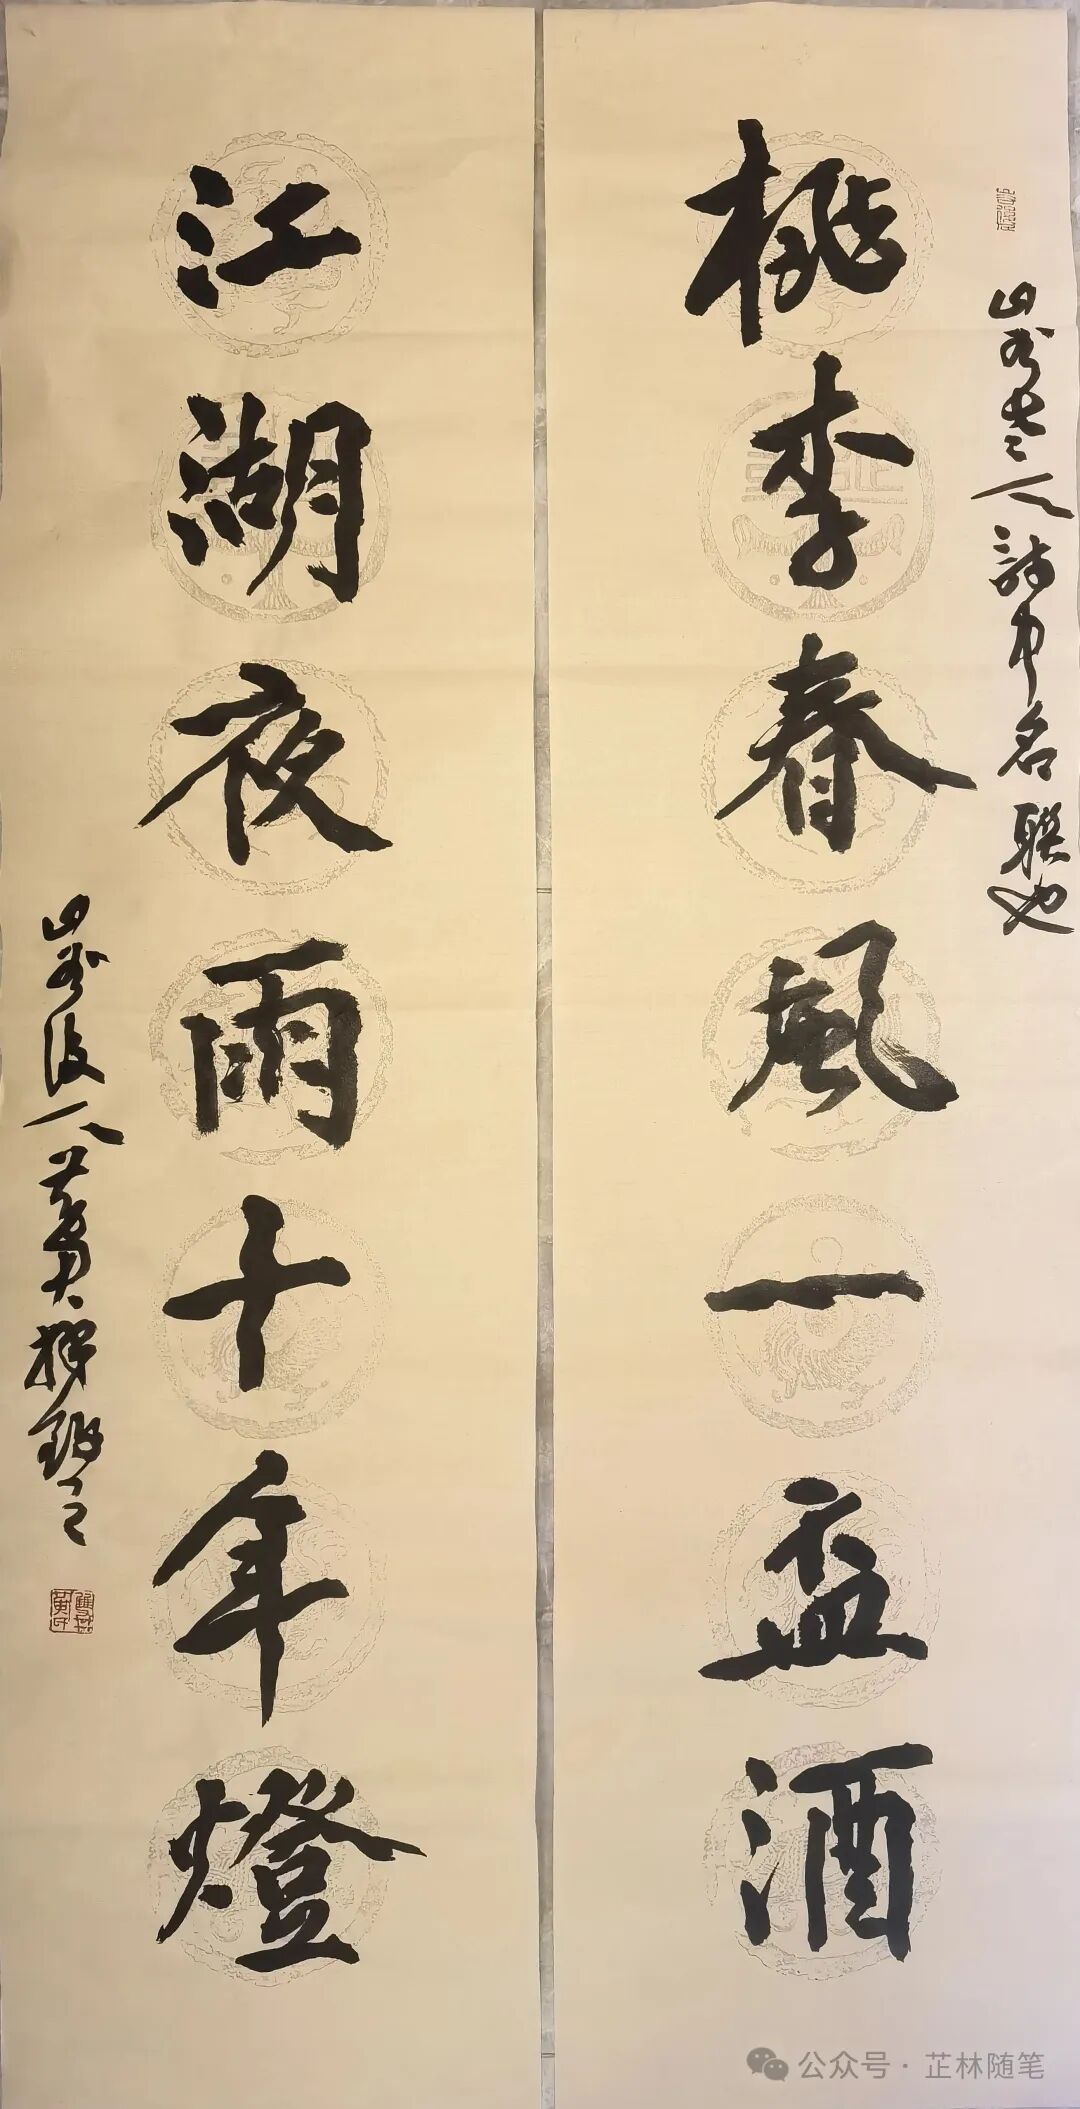 桃李春風一盃酒
山谷老人詩中名聯也
江湖夜雨十年燈
山谷後人黃
公众号·芷林随笔